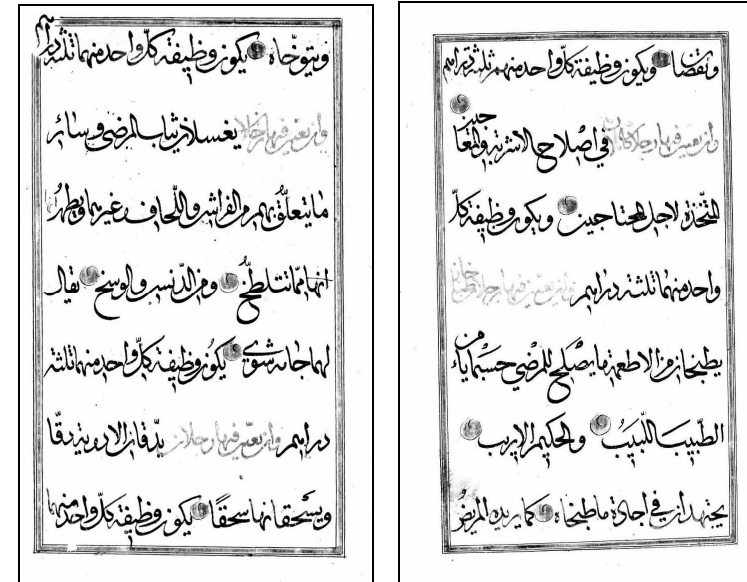 ونقصان ويكون وظيفة كلّ واحد منهم ثلثة دراهم
وان يعين فيها رجلان في اصلاح الاشربة والمعاجين
المتّخذة لاجل المحتاجين ويكون وظيفة كلّ
واحد منهما ثلثة دراهم وان يعين فيها رجلان طباخان
يطبخان من الاطعمة ما يصلح للمرضى حسبما من
الطّبيب اللّبيب والحكيم الاريب
يجتهدان في اجادة ما طبخاه كما يريده المريض
ويتوخّاه يكون وظيفة كلّ واحد منهما ثلثة دراهم
وان يعين فيها رجلان يغسلان ثياب المرضى وسائر
ما يتعلّق بهم من الفراش واللّحاف وغيرهما ويطهر
انها ممّا تتلطّخ ومن الدّنس والوسخ يقال
لهما جامه شوي يكون وظيفة كلّ واحد منهما ثلثة
دراهم وان يعيّن فيها رجلان يدّقان الادوية دقّا
ويسحقانها سحقًا يكون وظيفة كلّ واحد منهما